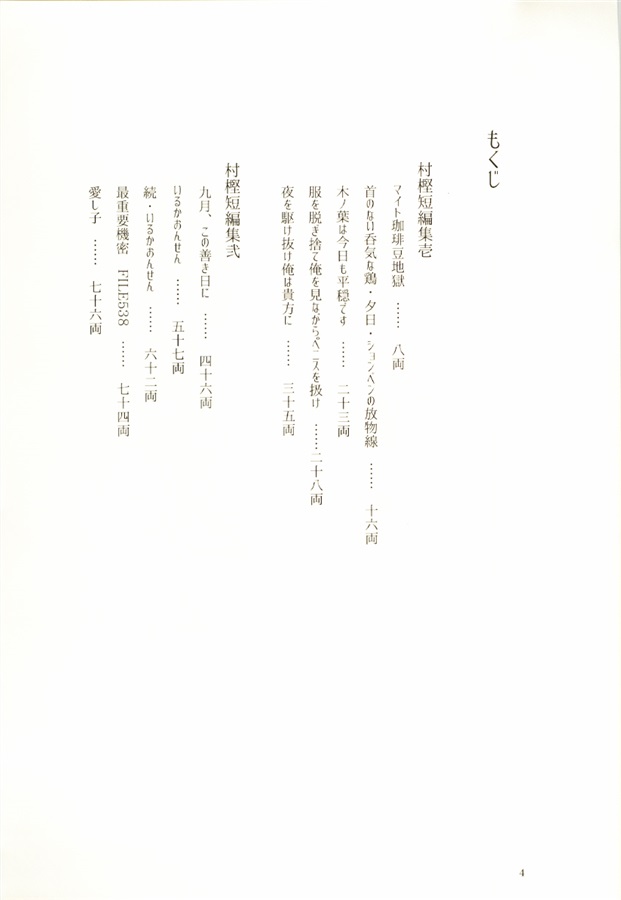 もくじ
村樫短編集壱
マイト珈琲豆地獄 …… 八両
首のない呑気な鶏・夕日・ションベンの放物線 …… 十六両
木ノ葉は今日も平穏です …… 二十三両
服を脱ぎ捨て俺を見ながらペニスを扱け ……二十八両
夜を駆け抜け俺は貴方に …… 三十五両
村樫短編集弐
九月、この善き日に …… 四十六両
いるかおんせん …… 五十七両
続・いるかおんせん …… 六十二両
最重要機密 FILE538 …… 七十四両
愛し子 …… 七十六両
4